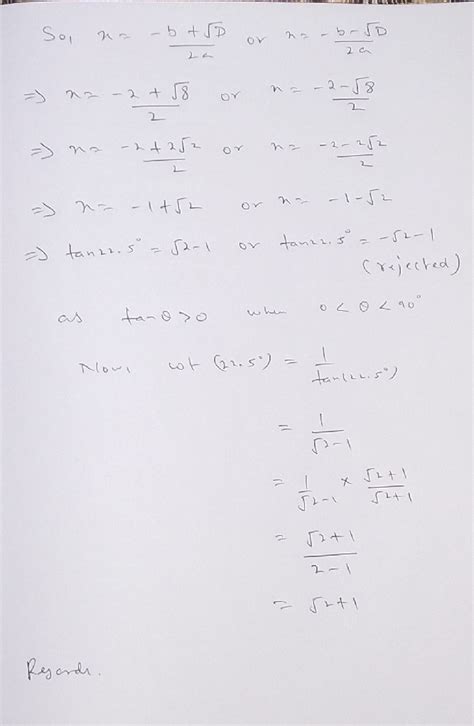 So, x = (-b + √D)/2a or x = (-b - √D)/2a
⇒ x = (-2 + √8)/2 or x = (-2 - √8)/2
⇒ x = (-2 + 2√2)/2 or x = (-2 - 2√2)/2
⇒ x = -1 + √2 or x = -1 - √2
⇒ tan 22.5° = √2 - 1 or tan 22.5° = -√2 - 1
(rejected)
as tan θ > 0 when 0 < θ < 90°
Now, cot (22.5°) = 1/tan(22.5°)
= 1/(√2 - 1)
= 1/(√2 - 1) × (√2 + 1)/(√2 + 1)
= (√2 + 1)/(2 - 1)
= √2 + 1
Regards.